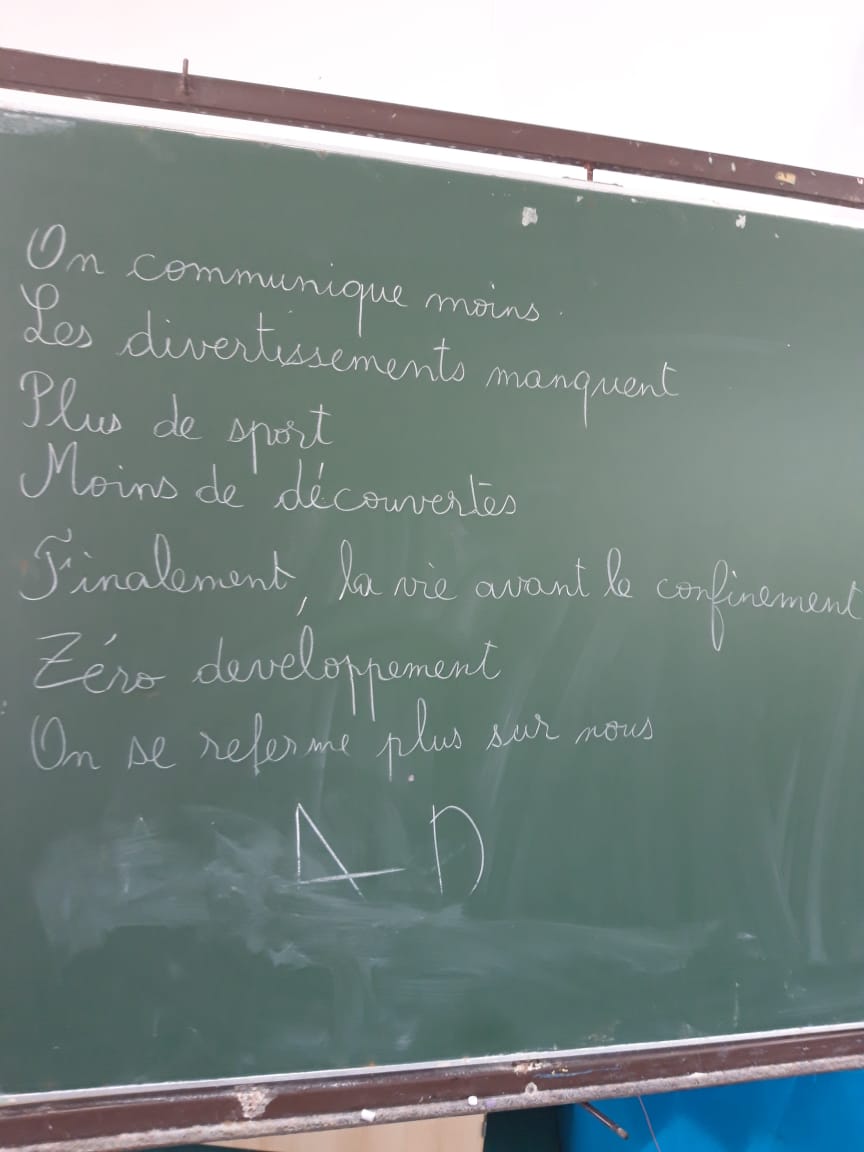 On communique moins.
Les divertissements manquent
Plus de sport
Moins de découvertes
Finalement, la vie avant le confinement
Zéro developpement
On se referme plus sur nous
A D